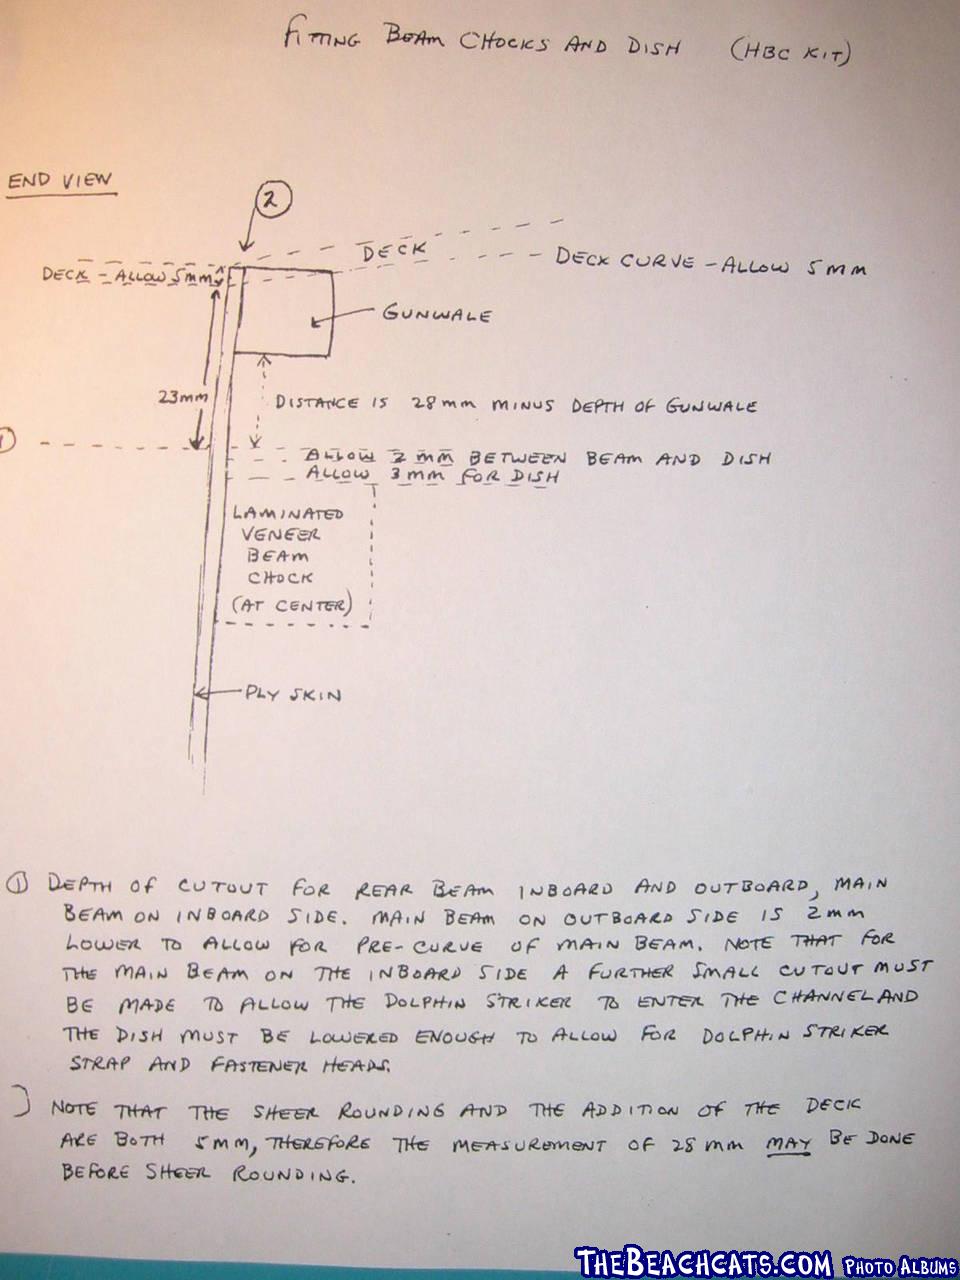 FITTING BEAM CHOCKS AND DISH (HBC KIT)
END VIEW
2
DECK
DECK - ALLOW 5MM
DECK CURVE - ALLOW 5MM
GUNWALE
23mm
DISTANCE IS 28MM MINUS DEPTH OF GUNWALE
1
ALLOW 2 MM BETWEEN BEAM AND DISH
ALLOW 3MM FOR DISH
LAMINATED
VENEER
BEAM
CHOCK
(AT CENTER)
PLY SKIN
① DEPTH OF CUTOUT FOR REAR BEAM INBOARD AND OUTBOARD, MAIN
BEAM ON INBOARD SIDE. MAIN BEAM ON OUTBOARD SIDE IS 2mm
LOWER TO ALLOW FOR PRE-CURVE OF MAIN BEAM. NOTE THAT FOR
THE MAIN BEAM ON THE INBOARD SIDE A FURTHER SMALL CUTOUT MUST
BE MADE TO ALLOW THE DOLPHIN STRIKER TO ENTER THE CHANNEL AND
THE DISH MUST BE LOWERED ENOUGH TO ALLOW FOR DOLPHIN STRIKER
STRAP AND FASTENER HEADS.
NOTE THAT THE SHEER ROUNDING AND THE ADDITION OF THE DECK
ARE BOTH 5MM, THEREFORE THE MEASUREMENT OF 28 MM MAY BE DONE
BEFORE SHEER ROUNDING.
THEBEACHCATS.COM PHOTO ALBUMS